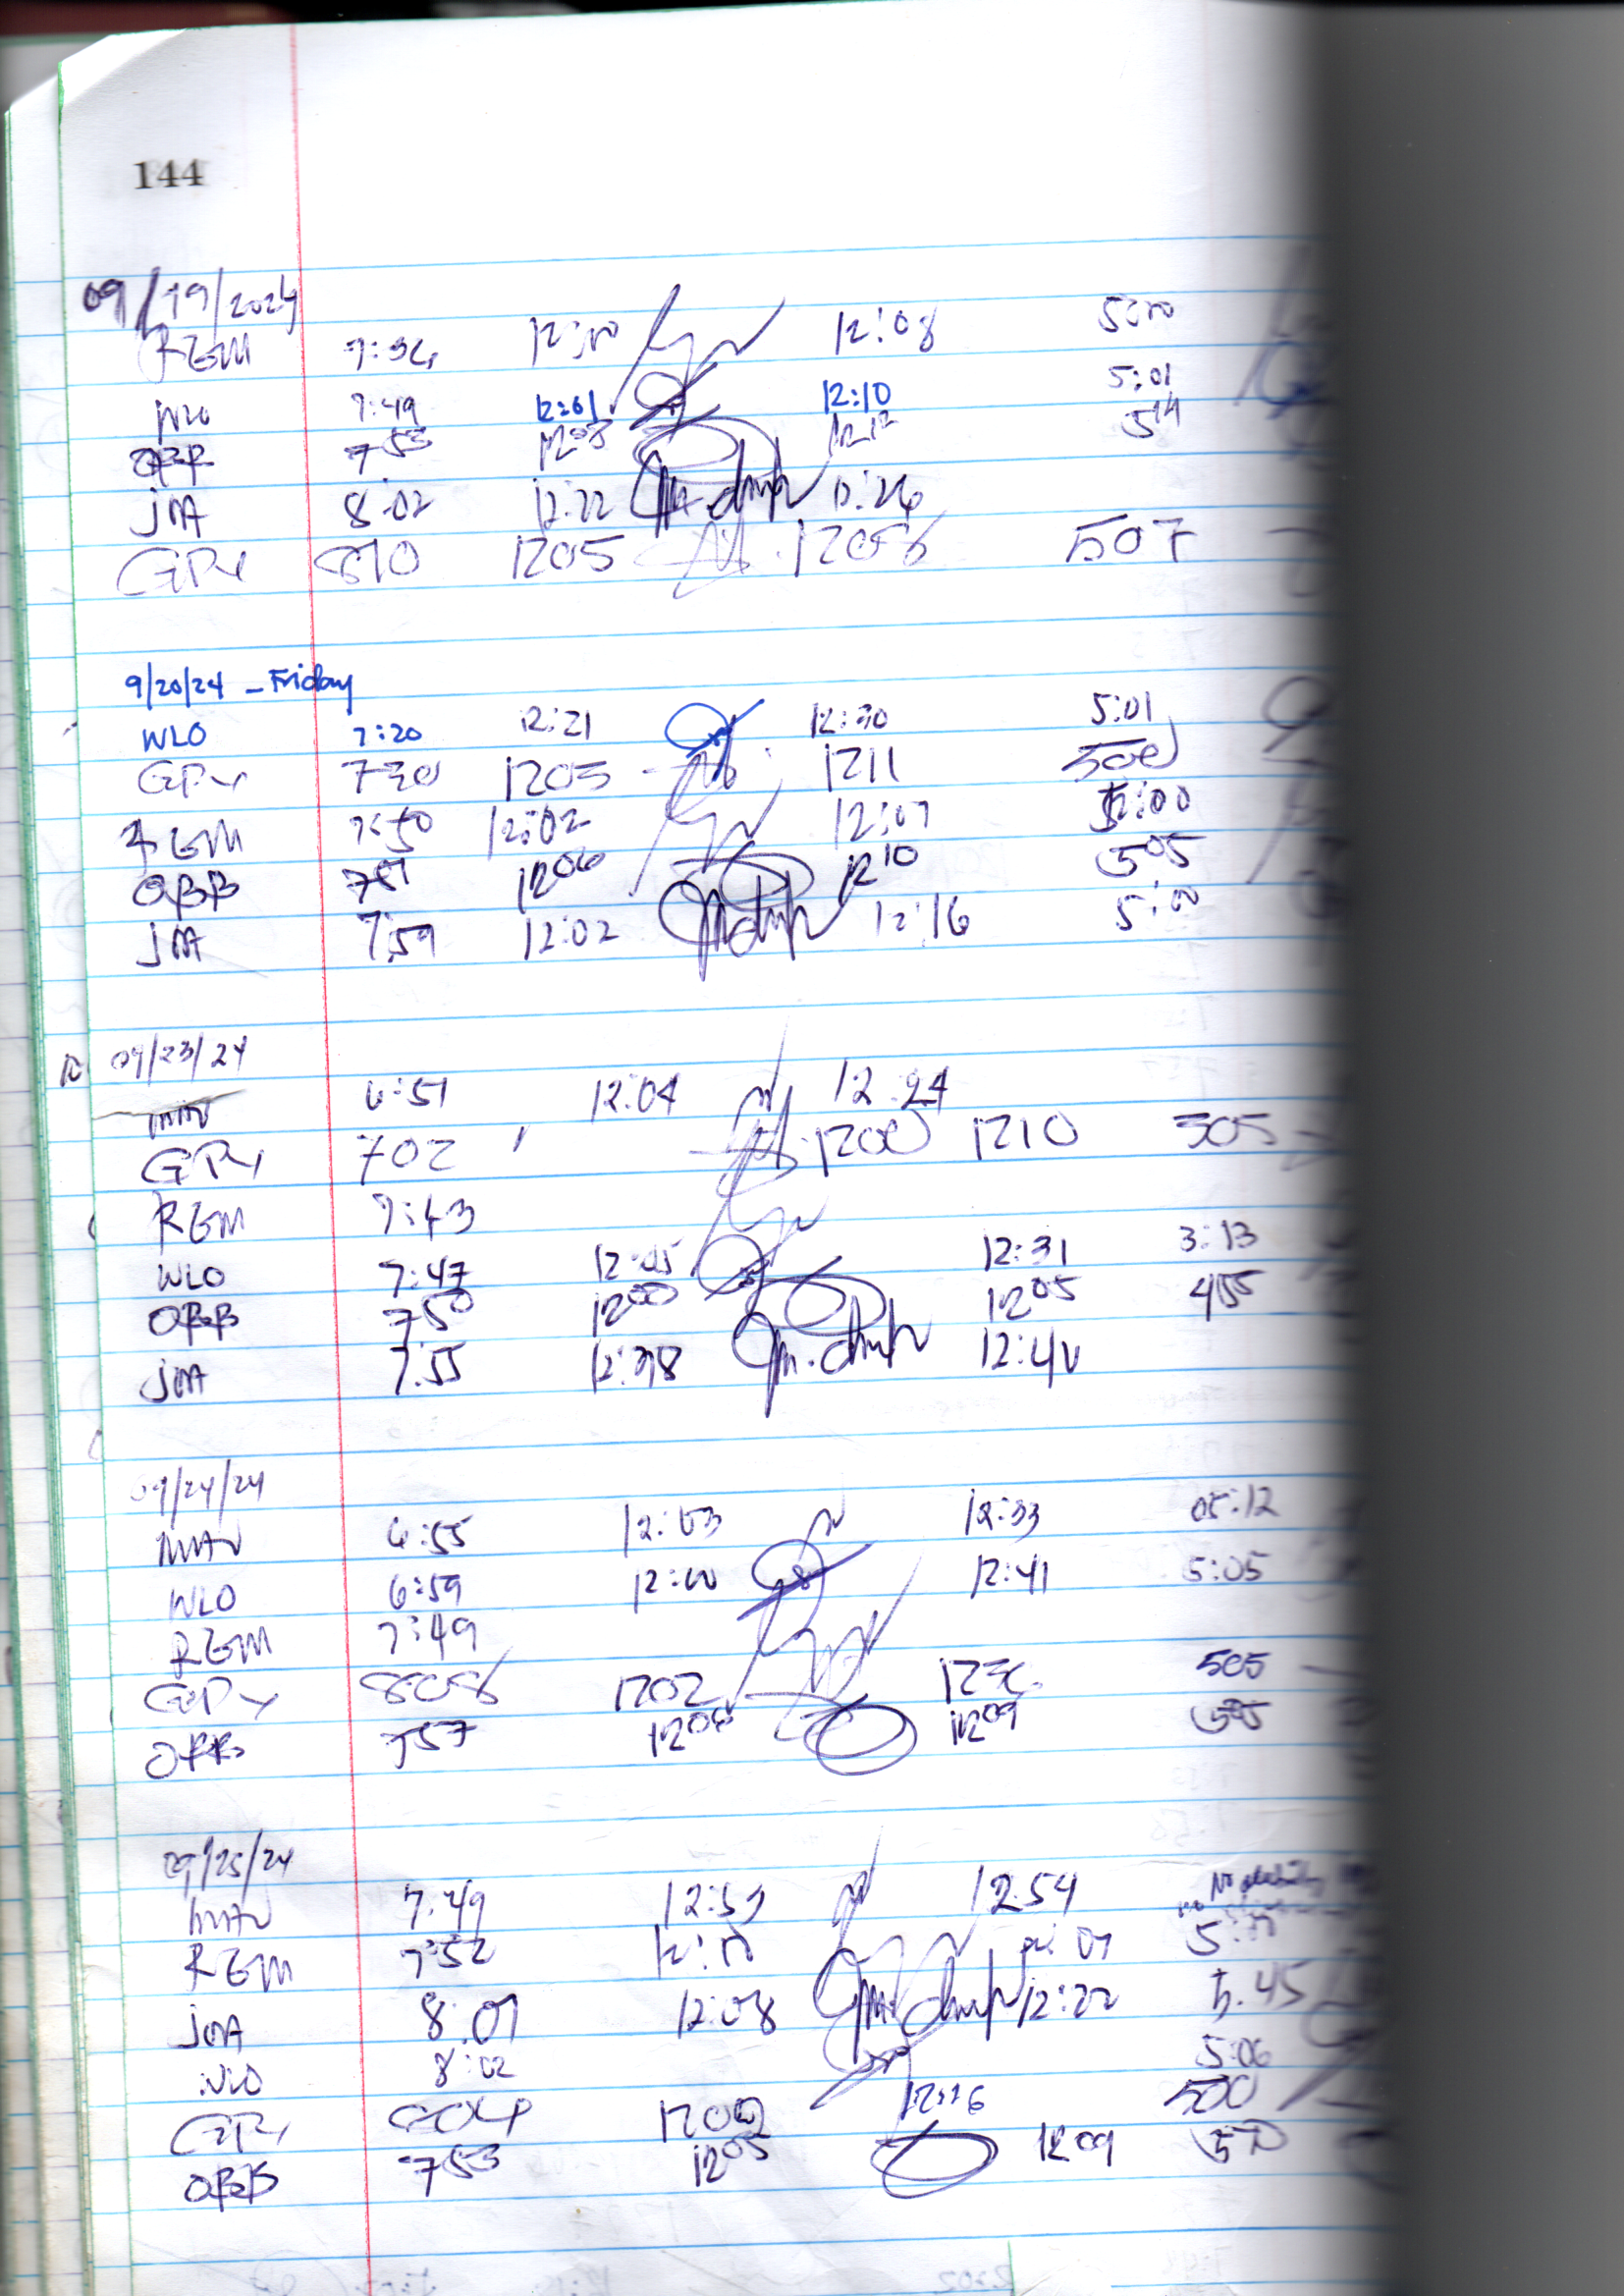 144
09/19/2024
REM 7:36 12:00 12:08 5:00
WLO 7:49 12:01 12:10 5:01
OBB 7 53 12 08 12 12 5 14
JMA 8:02 12:22 12:26
GPY 810 1205 1206 507
9/20/24 - Friday
WLO 7:20 12:21 12:30 5:01
GPY 730 1203 1211 500
REM 7:50 12:02 12:07 5:00
OBB 7 51 12 06 12 10 5 05
JMA 7:59 12:02 12:16 5:00
09/23/24
MAV 6:51 12:04 12:24
GPY 702 1200 1210 505
REM 7:43
WLO 7:47 12:05 12:31 3:13
OBB 7 50 12 00 12 05 4 55
JMA 7:55 12:38 12:40
09/24/24
MAV 6:55 12:03 12:33 05:12
WLO 6:59 12:00 12:41 5:05
REM 7:49
GPY 806 1202 505
OBB 7 57 12 06 12 09 5 05
09/25/24
MAV 7:49 12:53 12:54 No
REM 7:52 12:10 5:00
JMA 8:01 12:08 12:22 5:45
WLO 8:02 12:16 5:06
GPY 804 1202 500
OBB 7 53 12 05 12 09